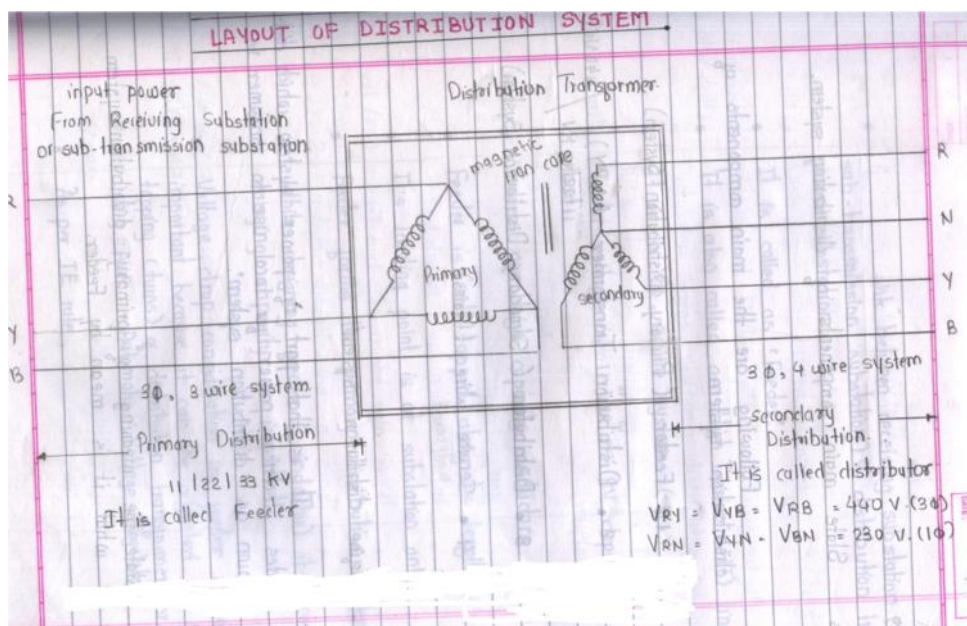 LAYOUT OF DISTRIBUTION SYSTEM
input power
From Receiving Substation
or sub-transmission substation
Distribution Transformer
magnetic
iron core
R
N
Y
B
Y
B
Primary
secondary
3Φ, 3 wire system
Primary Distribution
11 / 22 / 33 KV
It is called Feeder
3Φ, 4 wire system
secondary
Distribution
It is called distributor
VRY = VYB = VRB = 440 V. (3Φ)
VRN = VYN = VBN = 230 V. (1Φ)